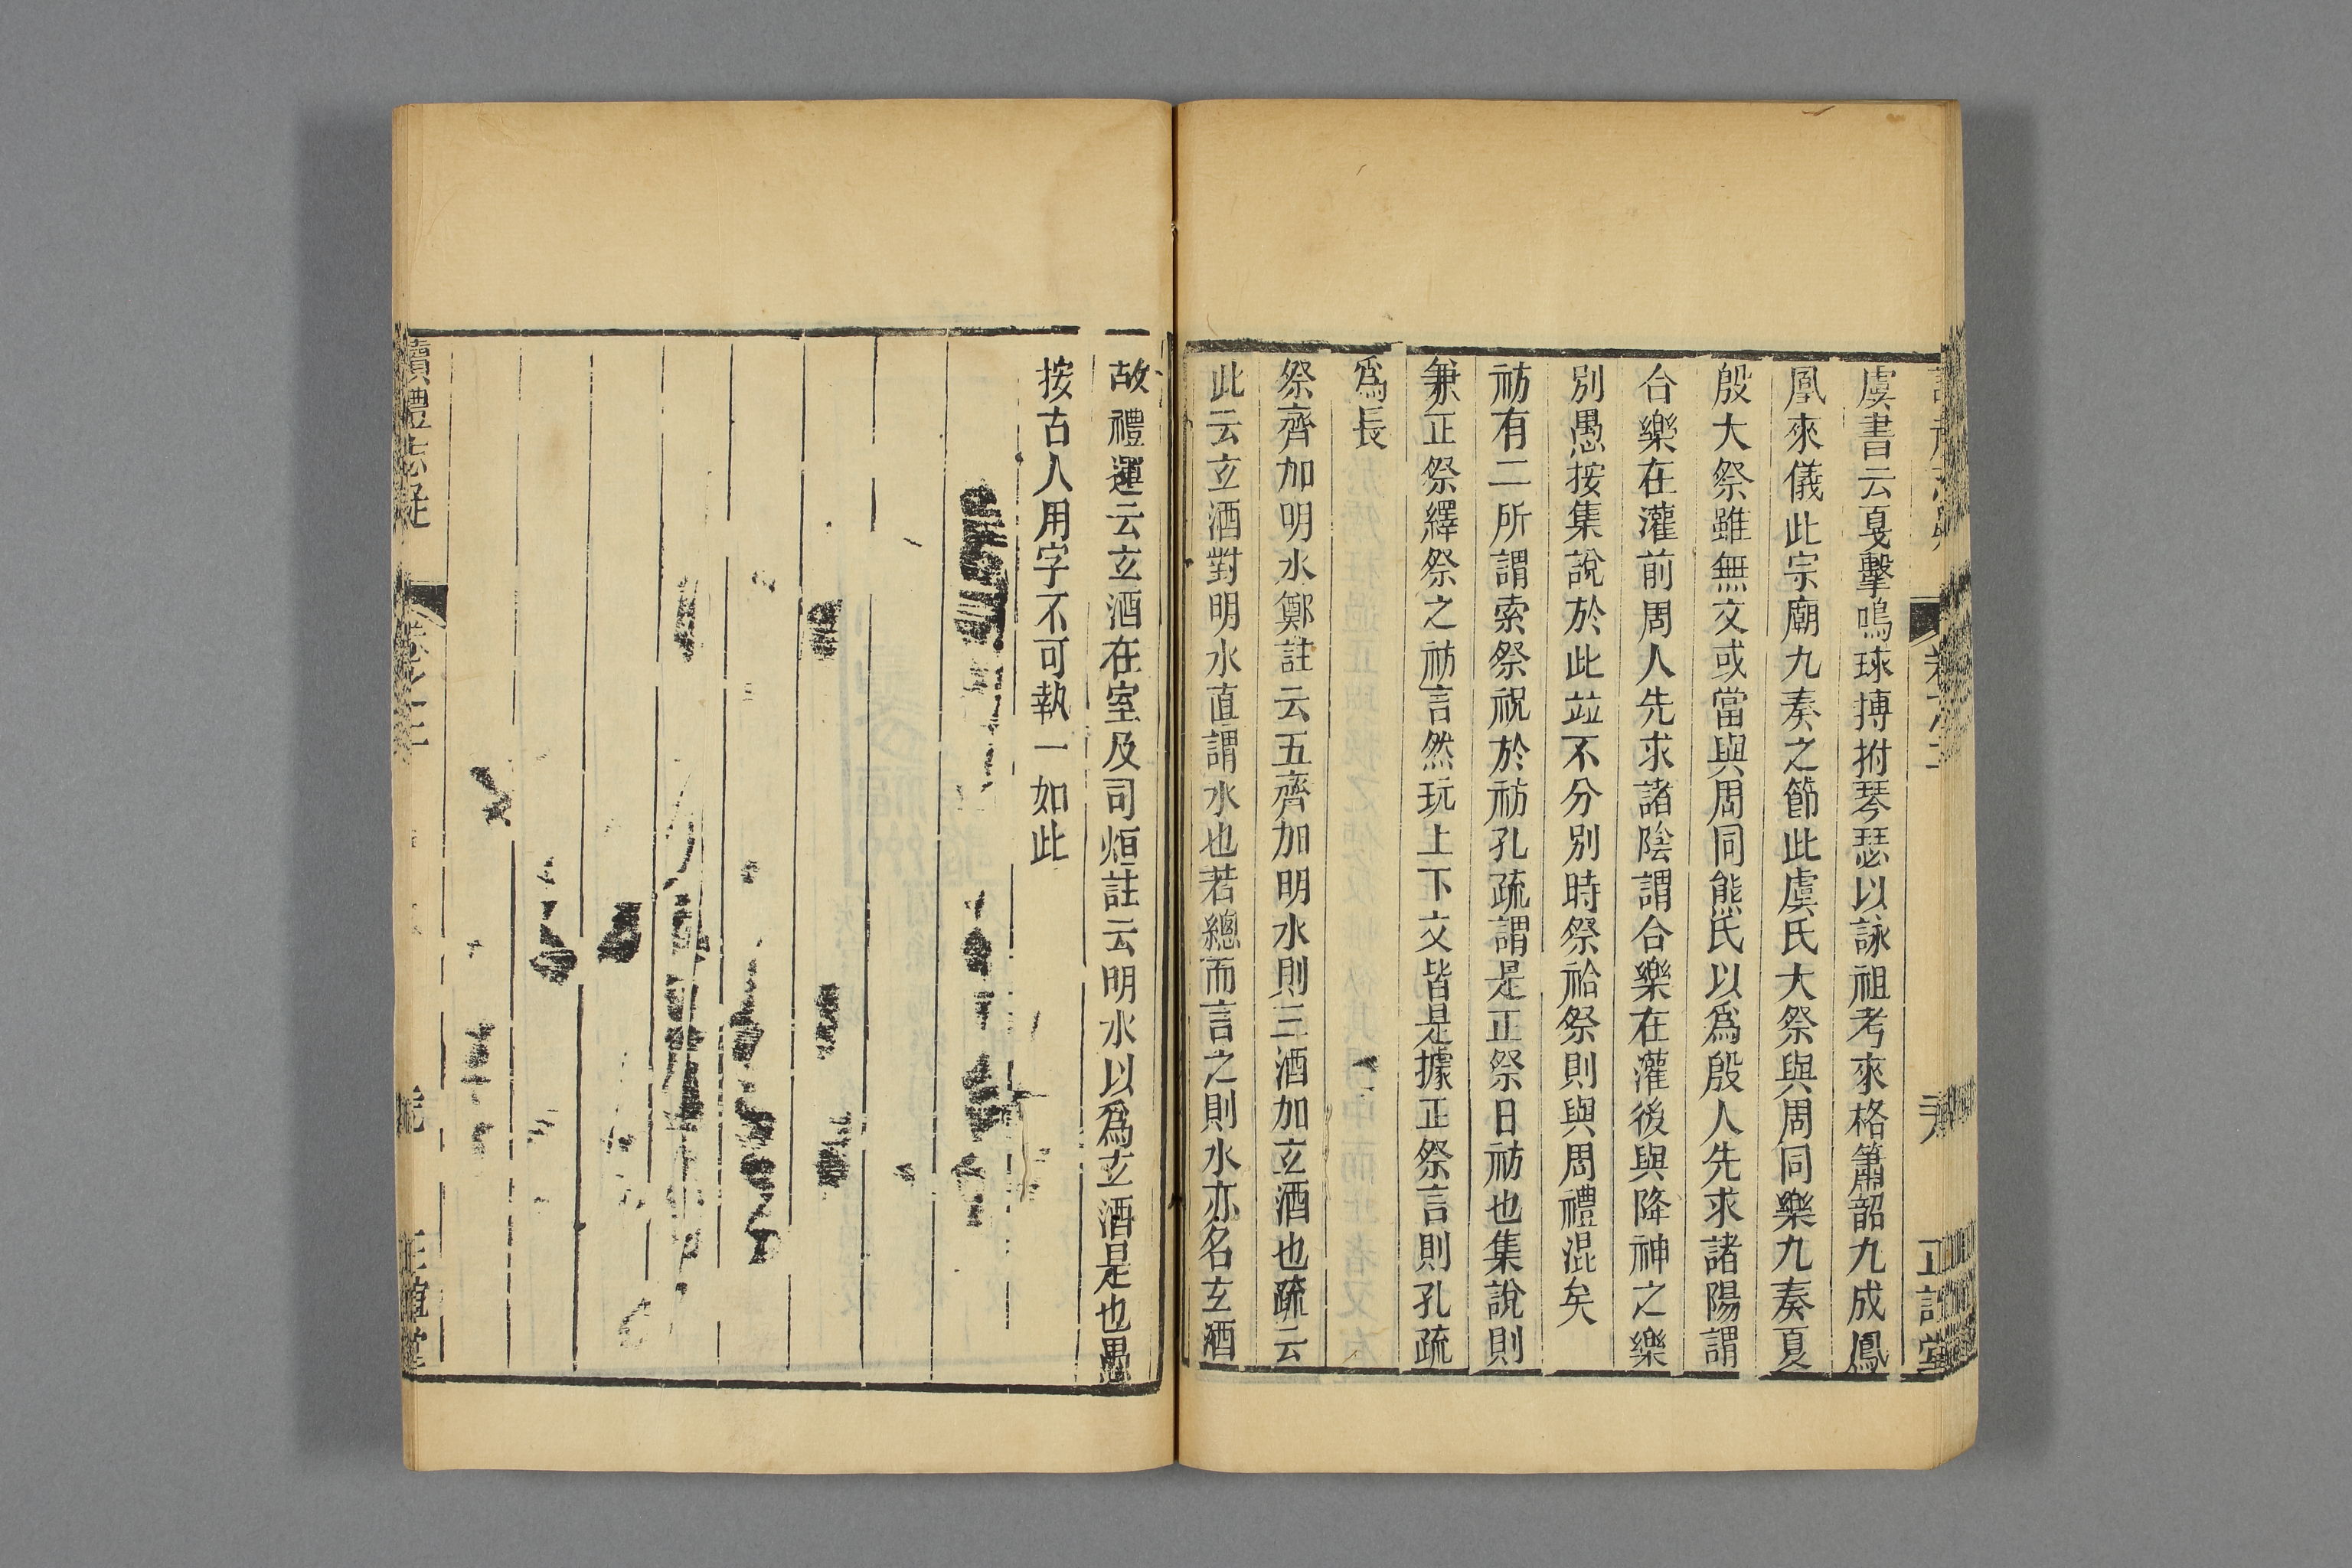 虞書云戛擊鳴球搏拊琴瑟以詠祖考來格簫韶九成鳳
凰來儀此宗廟九奏之節此虞氏大祭與周同樂九奏夏
殷大祭雖無文或當與周同熊氏以爲殷人先求諸陽謂
合樂在灌前周人先求諸陰謂合樂在灌後與降神之樂
別愚按集說於此竝不分別時祭祫祭則與周禮混矣
祊有二所謂索祭祝於祊孔疏謂是正祭日祊也集說則
兼正祭繹祭之祊言然玩上下文皆是據正祭言則孔疏
爲長
祭齊加明水鄭註云五齊加明水則三酒加玄酒也疏云
此云玄酒對明水直謂水也若總而言之則水亦名玄酒
故禮運云玄酒在室及司烜註云明水以爲玄酒是也愚
按古人用字不可執一如此
讀禮志疑
卷之二
正誼堂